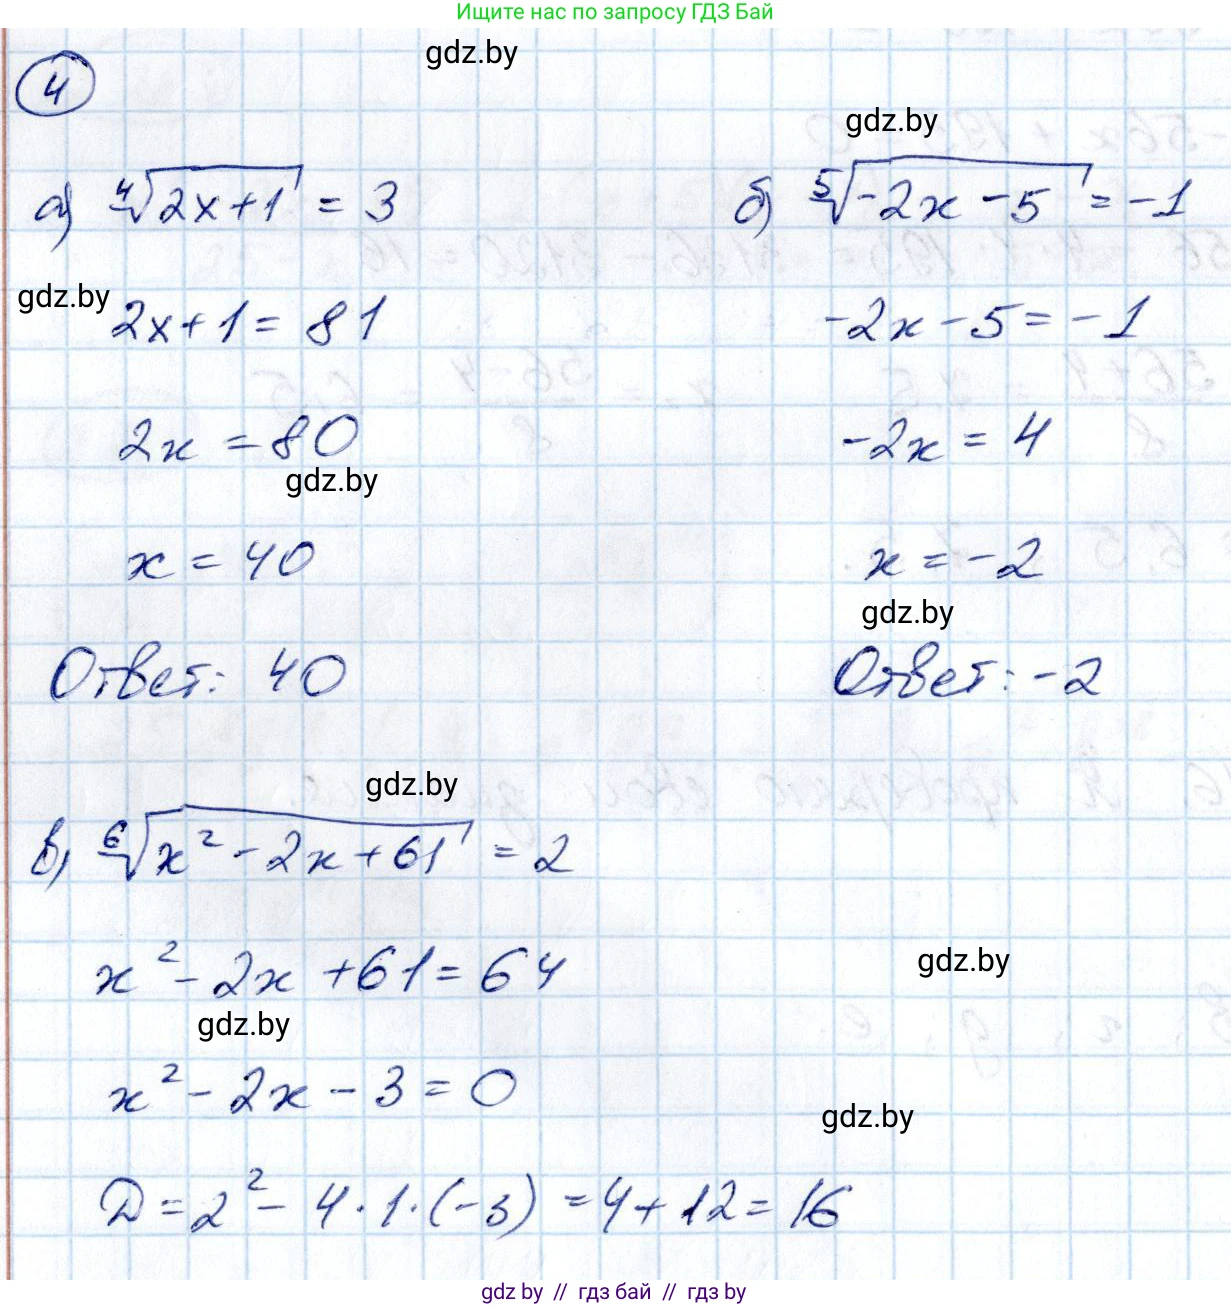 Ищите нас по запросу ГДЗ Бай
gdz.by
4
gdz.by
а) ⁴√(2x+1) = 3
б) ⁵√(-2x-5) = -1
gdz.by
2x+1 = 81
-2x-5 = -1
2x = 80
-2x = 4
gdz.by
x = 40
x = -2
gdz.by
Ответ: 40
Ответ: -2
gdz.by
в) ⁶√(x²-2x+61) = 2
gdz.by
x²-2x+61 = 64
gdz.by
x²-2x-3 = 0
gdz.by
D = 2²-4·1·(-3) = 4+12 = 16
gdz.by // гдз бай // гдз by